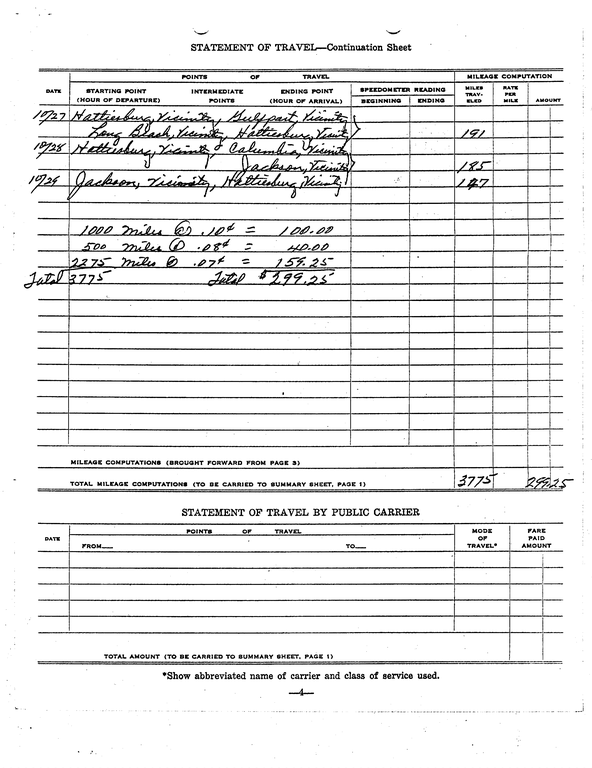 STATEMENT OF TRAVEL—Continuation Sheet
POINTS OF TRAVEL MILEAGE COMPUTATION
DATE STARTING POINT (HOUR OF DEPARTURE) INTERMEDIATE POINTS ENDING POINT (HOUR OF ARRIVAL) SPEEDOMETER READING BEGINNING ENDING MILES TRAVELED RATE PER MILE AMOUNT
10/27 Hattiesburg, Vicinity, Gulfport, Vicinity
Long Beach, Vicinity, Hattiesburg, Vicinity 191
10/28 Hattiesburg, Vicinity, Columbia, Vicinity
Jackson, Vicinity 185
10/29 Jackson, Vicinity, Hattiesburg Vicinity
1000 miles @ .10¢ = 100.00
500 miles @ .08¢ = 40.00
2275 miles @ .07¢ = 159.25
Total 3775 Total $299.25
MILEAGE COMPUTATIONS (BROUGHT FORWARD FROM PAGE 3)
TOTAL MILEAGE COMPUTATIONS (TO BE CARRIED TO SUMMARY SHEET, PAGE 1) 3775 299.25
STATEMENT OF TRAVEL BY PUBLIC CARRIER
DATE POINTS OF TRAVEL MODE OF TRAVEL* FARE PAID AMOUNT
FROM— TO—
TOTAL AMOUNT (TO BE CARRIED TO SUMMARY SHEET, PAGE 1)
*Show abbreviated name of carrier and class of service used.
—4—